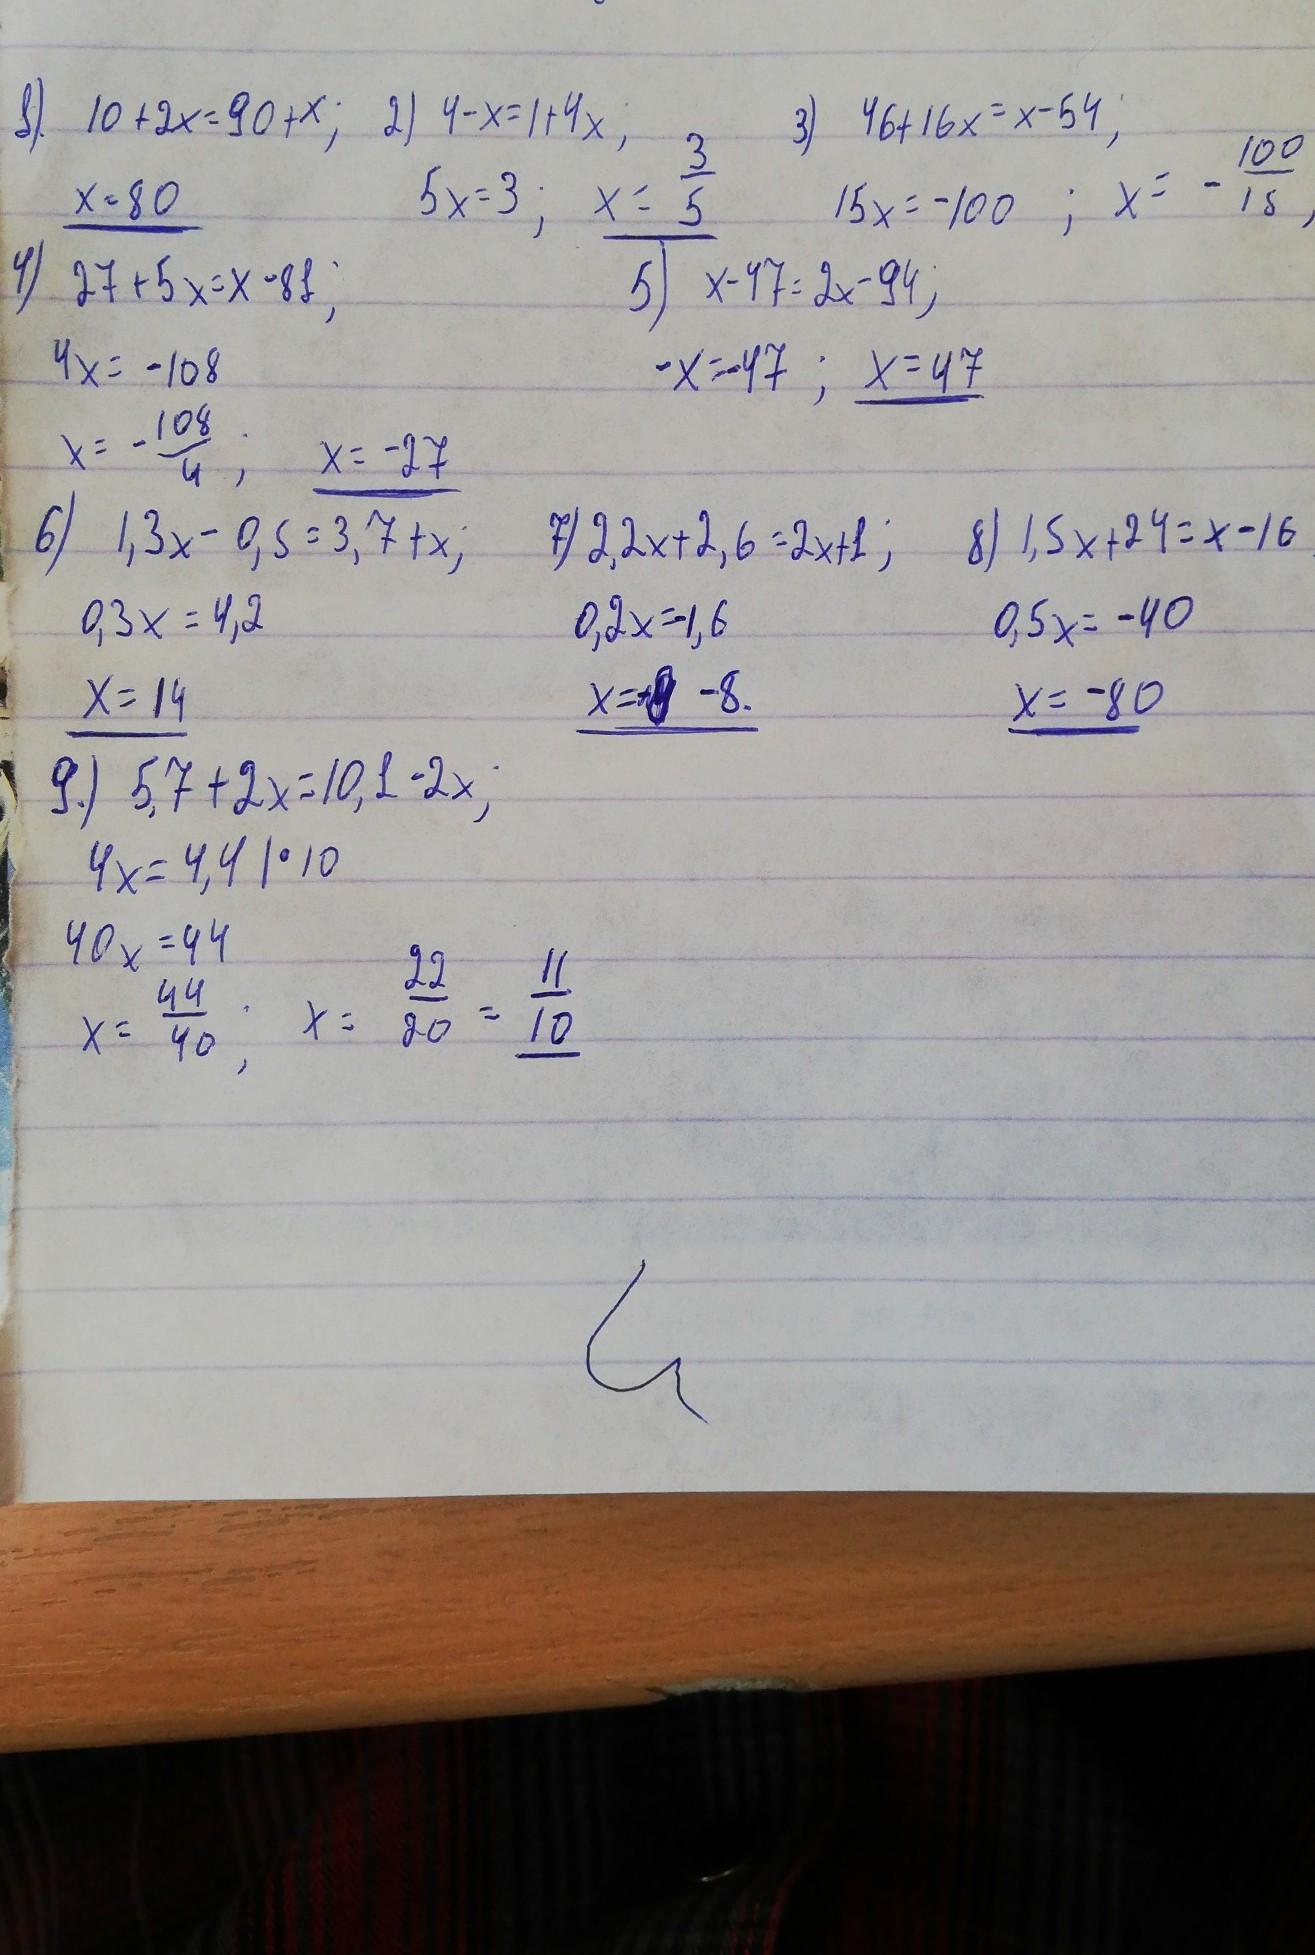 1). 10+2x=90+x; 2) 4-x=1+4x; 3) 46+16x=x-54;
x=80 5x=3; x=3/5 15x=-100; x=-100/15,
4) 27+5x=x-81; 5) x-47=2x-94;
4x=-108 -x=-47; x=47
x=-108/4; x=-27
6) 1,3x-0,5=3,7+x; 7) 2,2x+2,6=2x+1; 8) 1,5x+24=x-16
0,3x=4,2 0,2x=-1,6 0,5x=-40
x=14 x= -8. x=-80
9.) 5,7+2x=10,1-2x;
4x=4,4 |•10
40x=44
x=44/40; x=22/20=11/10